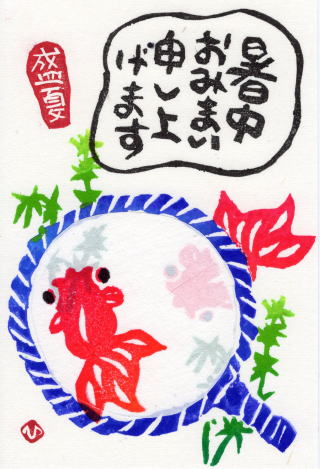 暑中
おみまい
申し上
げます
盛夏
ひ